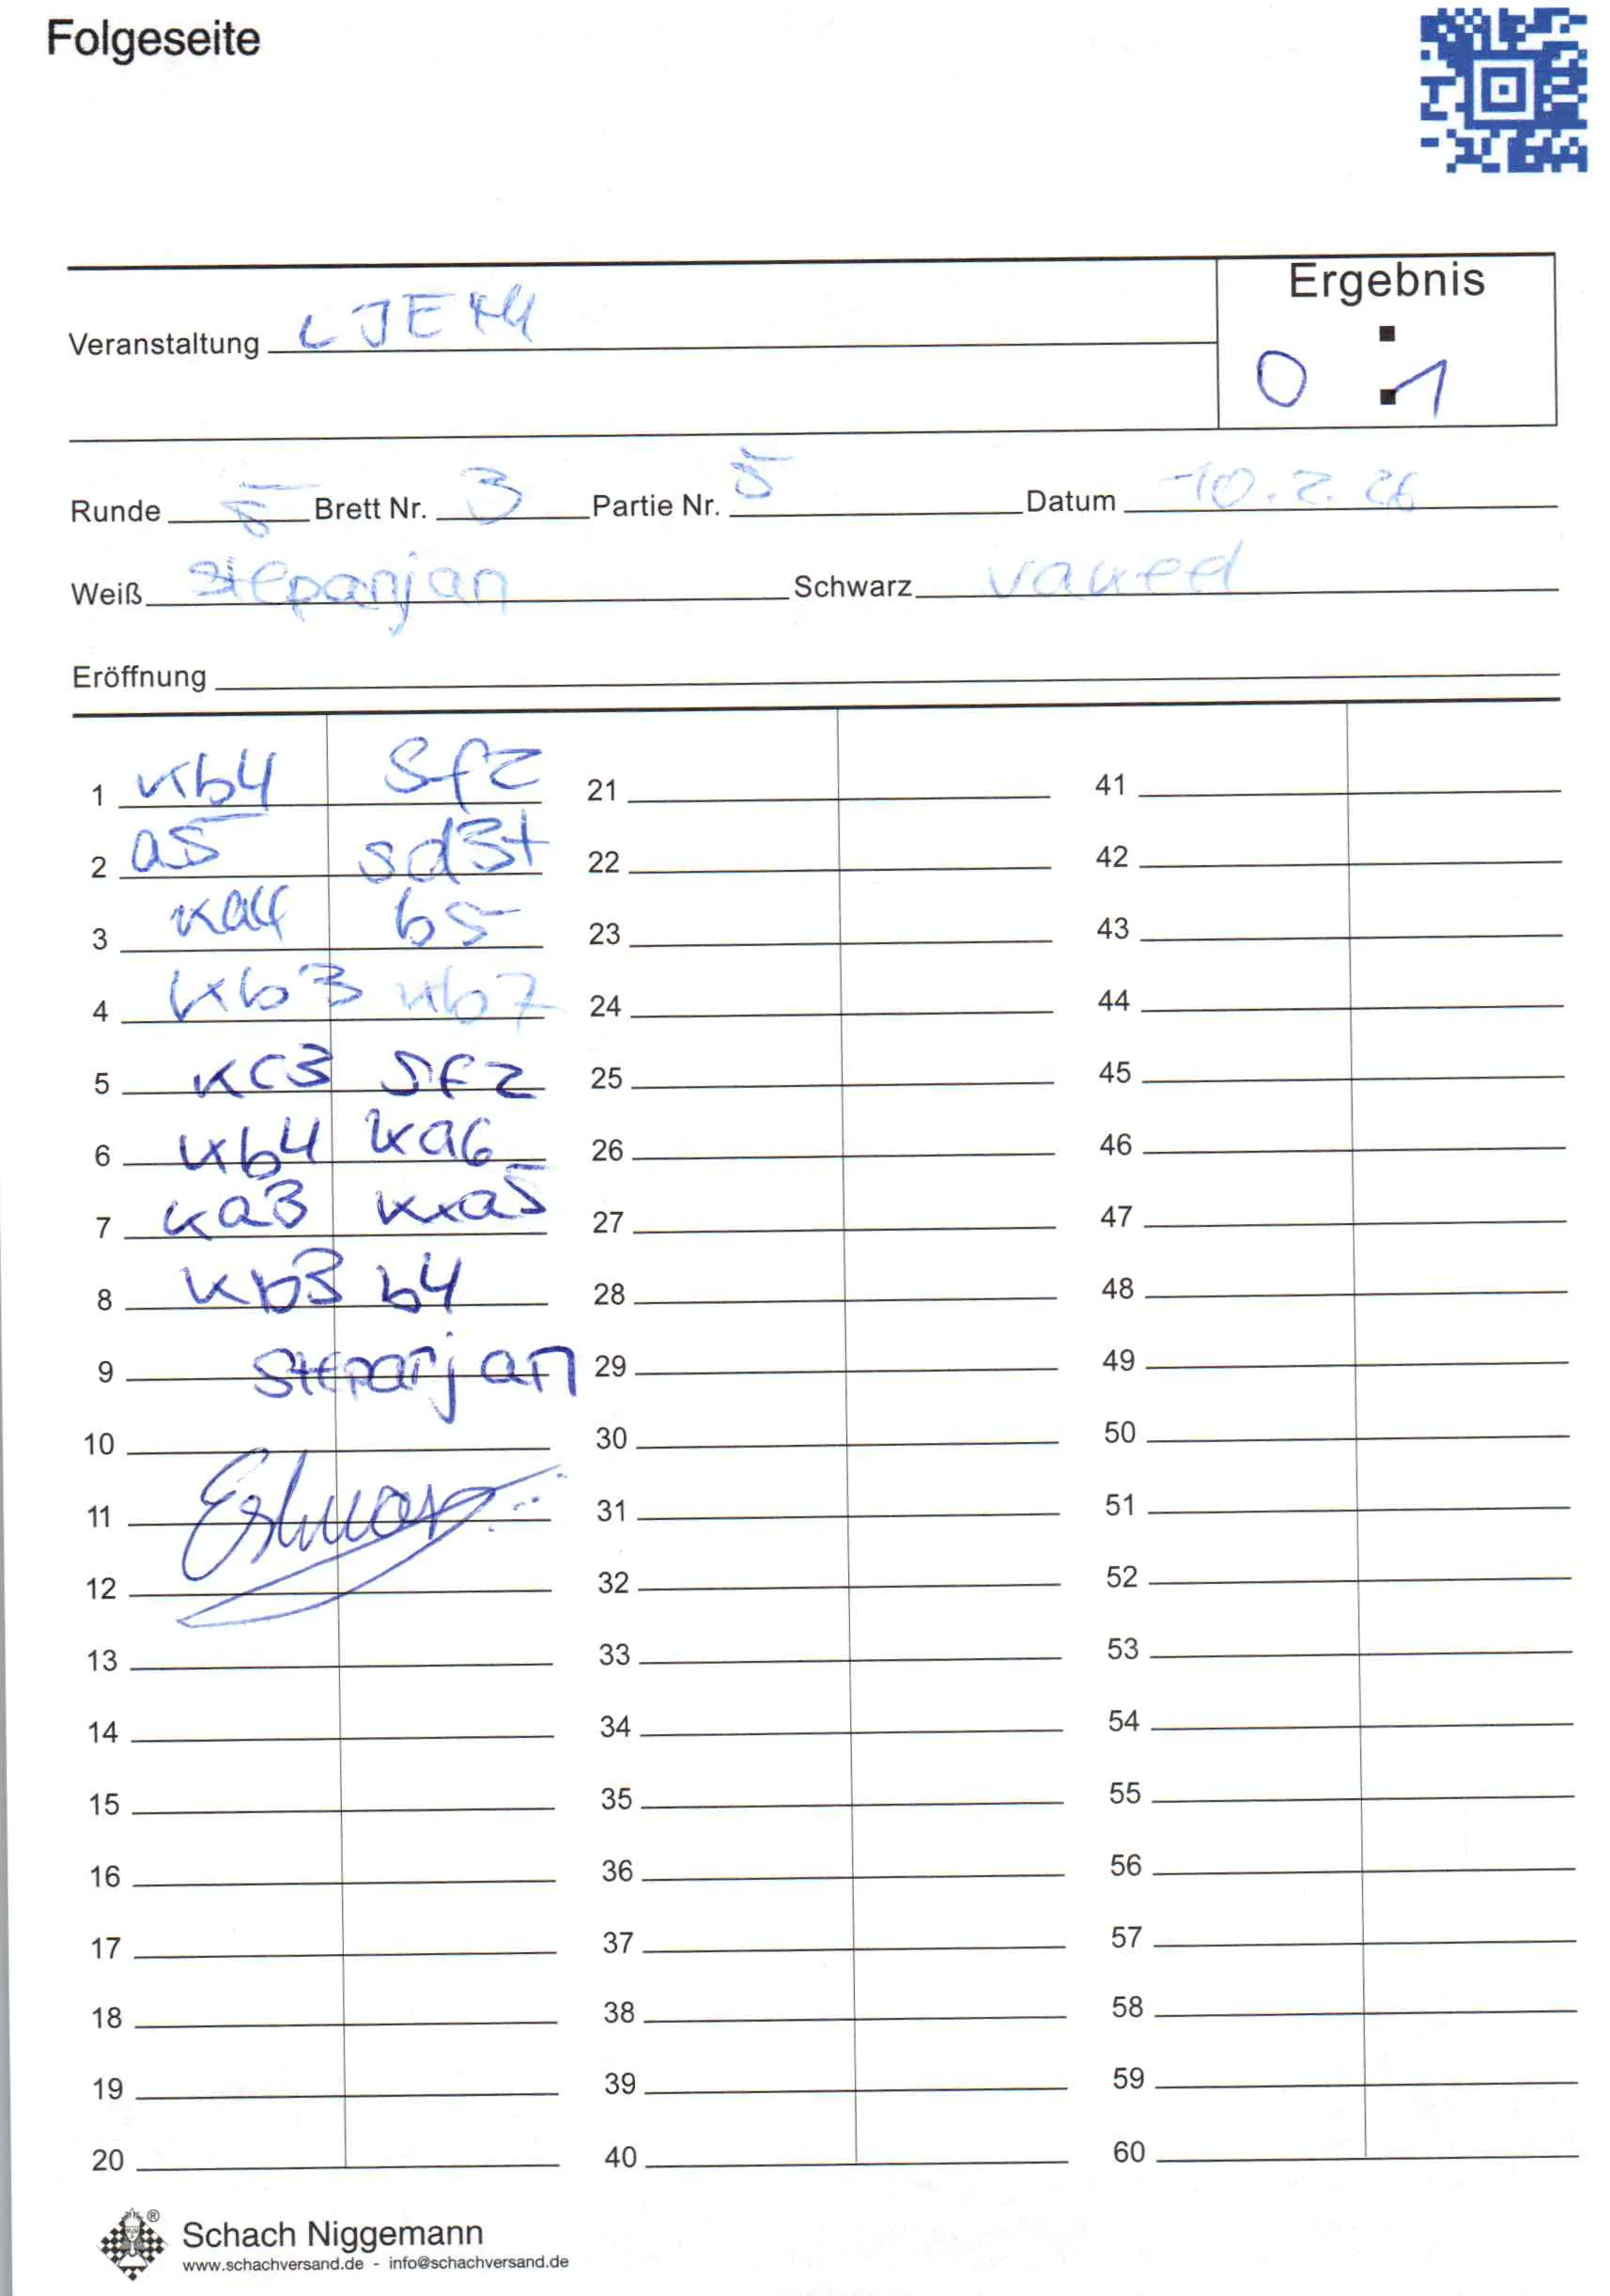 Folgeseite
Ergebnis
Veranstaltung LJEM
0 : 1
Runde 5 Brett Nr. 3 Partie Nr. 5 Datum 10.2.26
Weiß Stepanjan Schwarz
Eröffnung
1 Kb4 Sf2 21 41
2 a5 Sd3+ 22 42
3 Ka4 b5 23 43
4 Kb3 Kb7 24 44
5 Kc3 Sf2 25 45
6 Kb4 Ka6 26 46
7 Ka3 Kxa5 27 47
8 Kb3 b4 28 48
9 Stepanjan 29 49
10 30 50
11 31 51
12 32 52
13 33 53
14 34 54
15 35 55
16 36 56
17 37 57
18 38 58
19 39 59
20 40 60
® Schach Niggemann
www.schachversand.de - info@schachversand.de